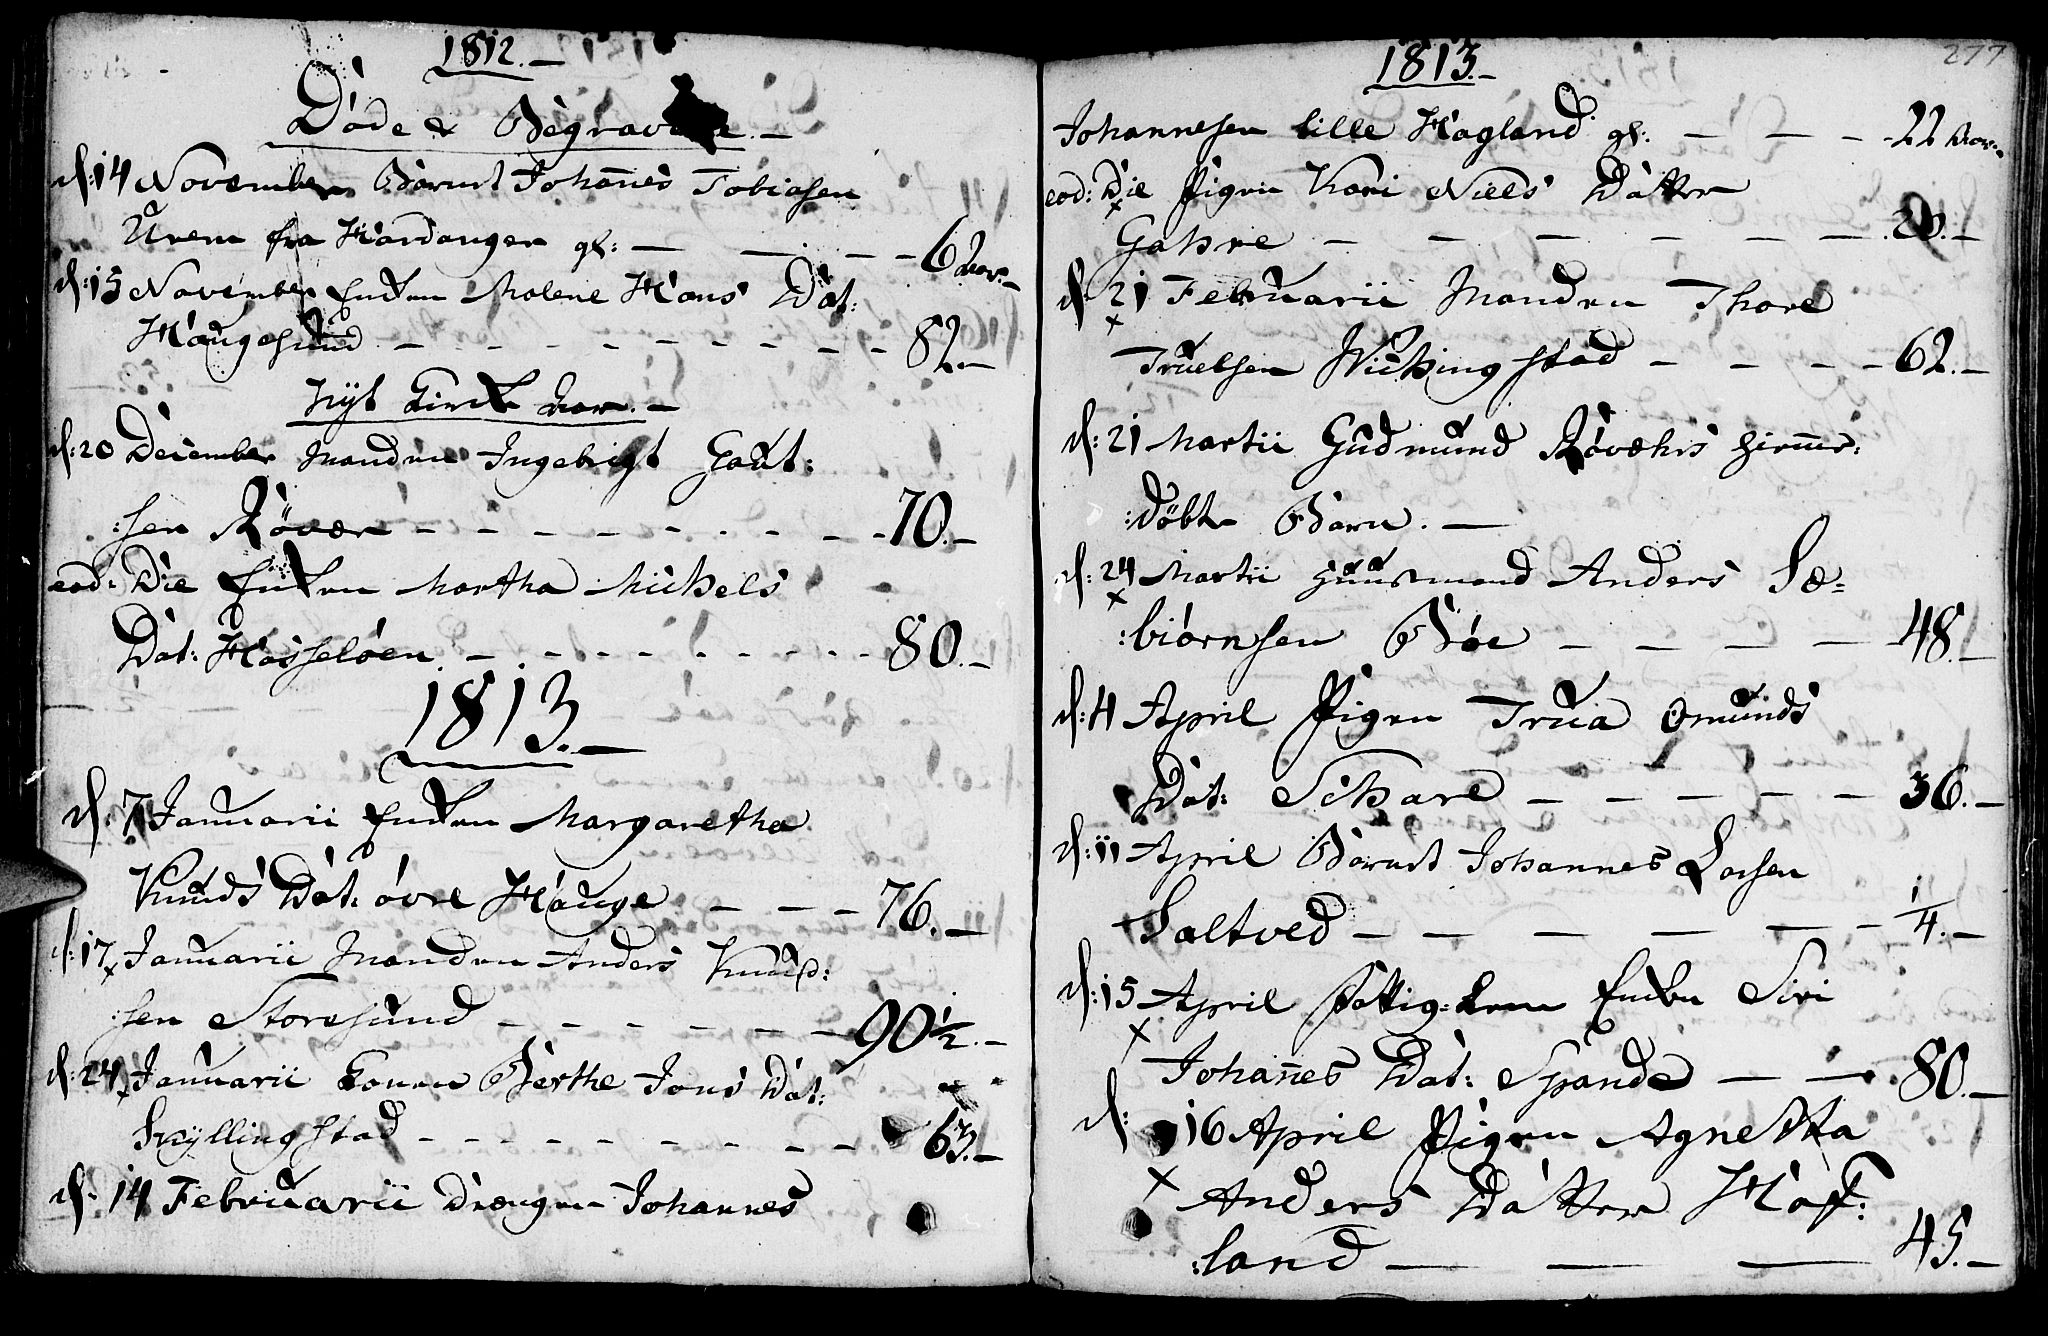 1812.–
Døde & Begravne.–
d: 14 November Barnet Johañes Tobiasen
Urem fra Hardanger gl: – – – 6 Aar.–
d: 15 November Enken Malene Hans Dat:
Haugesund – – – – – – – – – 82.–
Nyt Kirke Aar.–
d: 20 December Manden Ingebrigt Gaut:
:sen Røvær – – – – – – – – 70.–
eod: Die Enken Martha Michels
Dat: Hasseløen. – – – – – – – – 80.–
1813.–
d. 7 Januarii Enken Margaretha
Knuds Dat: øvre Hauge – – – 76.–
d: 17 Januarii Manden Anders Knud:
x
:sen Storesund – – – – – – – 90 1/2.–
d: 24 Januarii Konen Berthe Jons Dat:
x
Skyllingstad – – – – – – – – 63.–
d. 14 Februarii Drængen Johannes
1813.–
277
Johannesen lille Hagland gl: – – – 22 Aar.–
eod: Die Pigen Kari Niels Datter
x
Gahre – – – – – – 20.–
d. 21 Februarii Manden Thore
x
Truelsen Wichingstad – – – – 62.–
d: 21 Martii Gudmund Røvæhrs hieme:
:døbte Barn. –
d: 24 Martii Huusmand Anders Sæ=
x
:biørnsen Bøe – – – – 48.–
d: 4 April Pigen Trua Omunds
Dat: Schare – – – – – 36.–
d: 11 April Barnet Johannes Larsen
Saltved – – – – – – 1/4.–
d: 15 April Fattig: Lem Enken Siri
x
Johañes Dat: Spande – – 80.–
d: 16 April Pigen Agnetha
x
Anders Datter Haf:
:land – – – 45.–